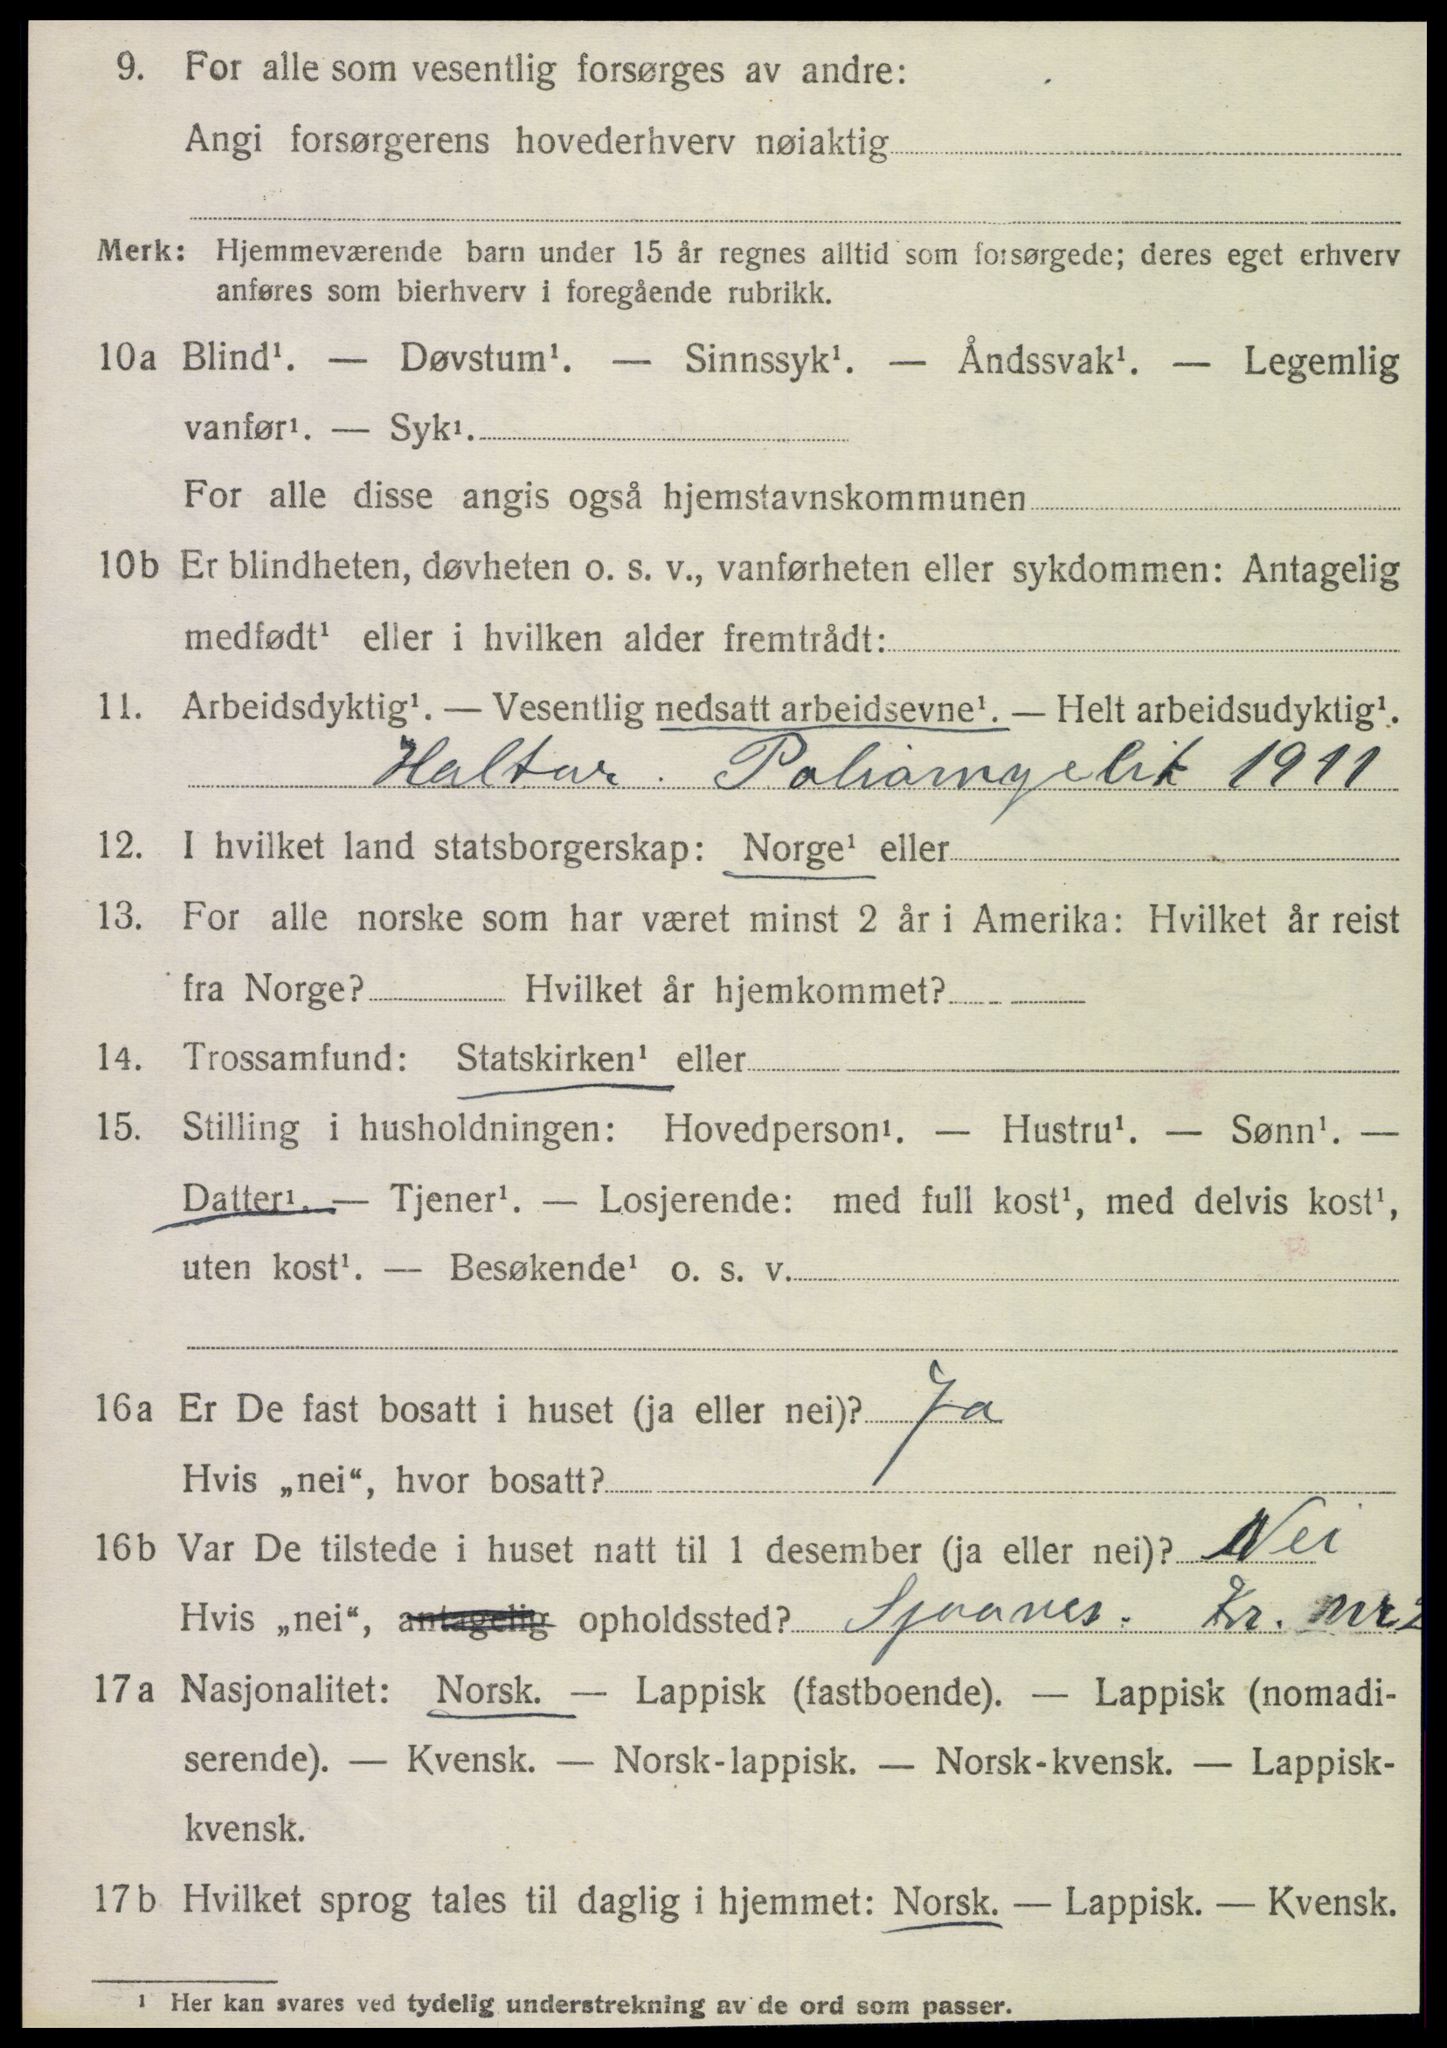 9. For alle som vesentlig forsørges av andre:
Angi forsørgerens hovederhverv nøiaktig
Merk: Hjemmeværende barn under 15 år regnes alltid som forsørgede; deres eget erhverv
anføres som bierhverv i foregående rubrikk.
10a Blind¹. — Døvstum¹. — Sinnssyk¹. — Åndssvak¹. — Legemlig
vanfør¹. — Syk¹.
For alle disse angis også hjemstavnskommunen
10b Er blindheten, døvheten o. s. v., vanførheten eller sykdommen: Antagelig
medfødt¹ eller i hvilken alder fremtrådt:
11. Arbeidsdyktig¹. — Vesentlig nedsatt arbeidsevne¹. — Helt arbeidsudyktig¹.
Haltar. Poliomyelit 1911
12. I hvilket land statsborgerskap: Norge¹ eller
13. For alle norske som har været minst 2 år i Amerika: Hvilket år reist
fra Norge? Hvilket år hjemkommet?
14. Trossamfund: Statskirken¹ eller
15. Stilling i husholdningen: Hovedperson¹. — Hustru¹. — Sønn¹. —
Datter¹. — Tjener¹. — Losjerende: med full kost¹, med delvis kost¹,
uten kost¹. — Besøkende¹ o. s. v.
16a Er De fast bosatt i huset (ja eller nei)? Ja
Hvis „nei“, hvor bosatt?
16b Var De tilstede i huset natt til 1 desember (ja eller nei)? Nei
Hvis „nei“, antagelig opholdssted? Kr. nr 2
17a Nasjonalitet: Norsk. — Lappisk (fastboende). — Lappisk (nomadi-
serende). — Kvensk. — Norsk-lappisk. — Norsk-kvensk. — Lappisk-
kvensk.
17b Hvilket sprog tales til daglig i hjemmet: Norsk. — Lappisk. — Kvensk.
¹ Her kan svares ved tydelig understrekning av de ord som passer.